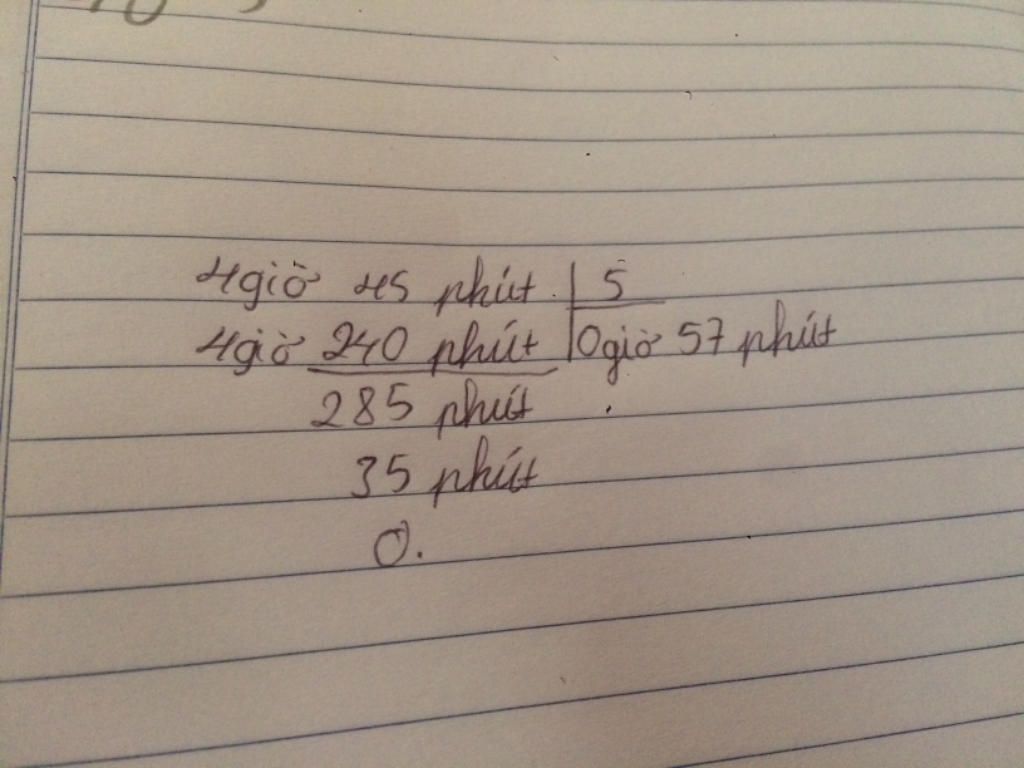 4giờ 45 phút 5
4giờ 240 phút 0giờ 57 phút
285 phút
35 phút
0.